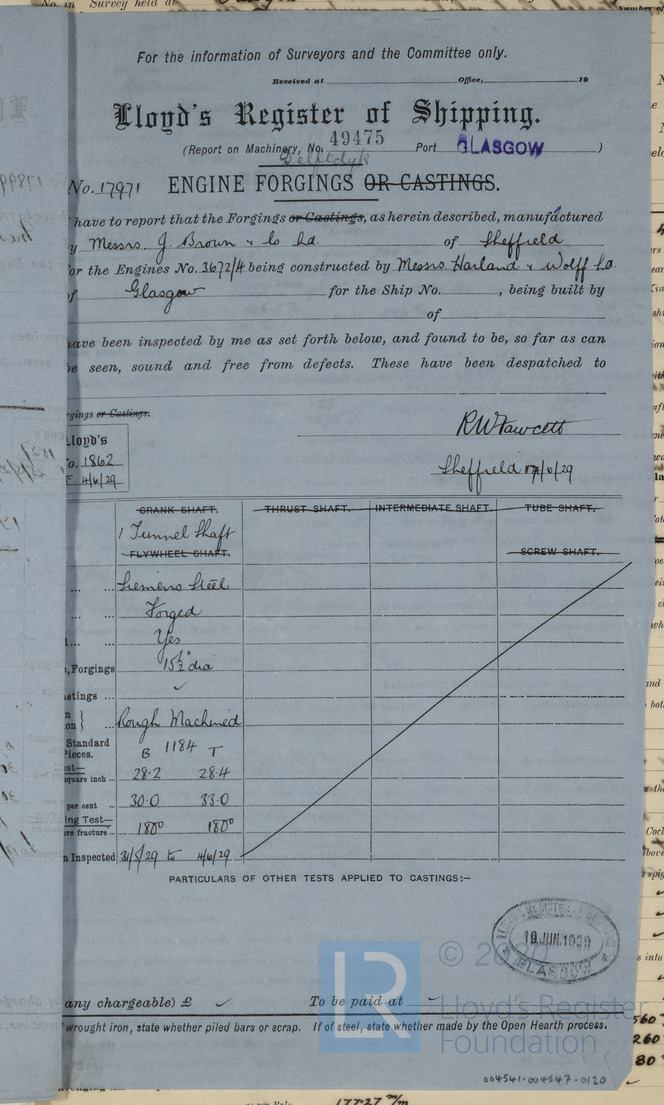 No. in Survey held at
For the information of Surveyors and the Committee only.
Received at Office, 19
Lloyd's Register of Shipping.
(Report on Machinery, No. 49475 Port GLASGOW )
Delftdyk
No. 17971 ENGINE FORGINGS OR CASTINGS.
have to report that the Forgings or Castings, as herein described, manufactured
y Messrs. J. Brown & Co Ld. of Sheffield
or the Engines No. 3672/4 being constructed by Messrs. Harland & Wolff Ld.
f Glasgow for the Ship No. , being built by
of
ave been inspected by me as set forth below, and found to be, so far as can
e seen, sound and free from defects. These have been despatched to
rgings or Castings.
RW Fawcett
Lloyd's
o. 1862
4/6/29
Sheffield 17/6/29
CRANK SHAFT. THRUST SHAFT. INTERMEDIATE SHAFT. TUBE SHAFT.
1 Tunnel Shaft
FLYWHEEL SHAFT. SCREW SHAFT.
... ... Siemens Steel
... ... Forged
... ... Yes
, Forgings 15½" dia
stings ... ✓
on } Rough Machined
Standard
Pieces. B 1184 T
st—
square inch ... 28.2 28.4
per cent 30.0 33.0
ing Test—
re fracture ... 180° 180°
n Inspected 31/5/29 to 4/6/29.
PARTICULARS OF OTHER TESTS APPLIED TO CASTINGS:—
19 JUN. 1929
GLASGOW
© 20
LR
Lloyd's Register
Foundation
any chargeable) £ ✓ To be paid at
wrought iron, state whether piled bars or scrap. If of steel, state whether made by the Open Hearth process.
560
260
80
004541-004547-0120
177.27 m/m